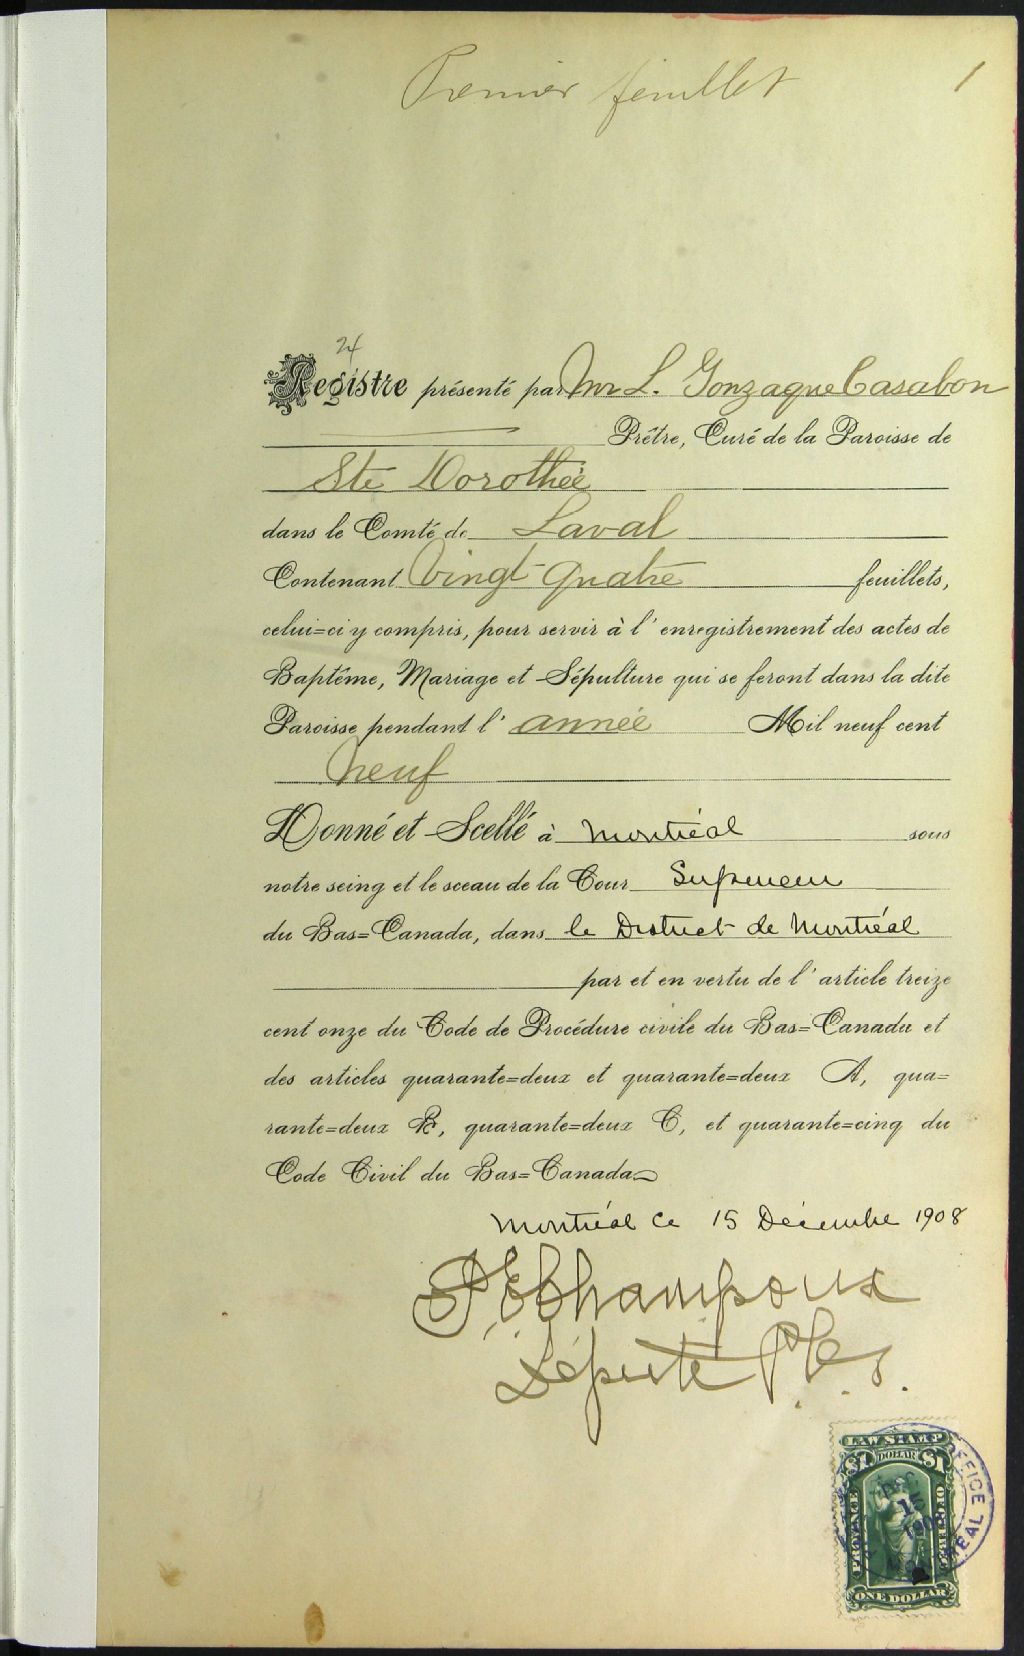 Premier feuillet 1
24
Registre présenté par Mr L. Gonzague Casabon
Prêtre, Curé de la Paroisse de
Ste Dorothée
dans le Comté de Laval
Contenant Vingt-quatre feuillets,
celui=ci y compris, pour servir à l'enregistrement des actes de
Baptême, Mariage et Sépulture qui se feront dans la dite
Paroisse pendant l'année Mil neuf cent
neuf
Donné et Scellé à Montréal sous
notre seing et le sceau de la Cour Superieure
du Bas=Canada, dans le District de Montréal
par et en vertu de l'article treize
cent onze du Code de Procédure civile du Bas=Canada et
des articles quarante=deux et quarante=deux A, qua=
rante=deux B, quarante=deux C, et quarante=cinq du
Code Civil du Bas=Canada
Montréal ce 15 Décembre 1908
Champoux
Député P.C.S.
LAW STAMP
$1 DOLLAR $1
PROVINCE OF QUEBEC
ONE DOLLAR
OFFICE
DEC
15
1908
MONTREAL